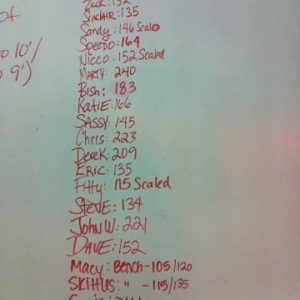 of
o 10'/
o 9')
Zack: 132
Sinclair: 135
Sandy: 146 Scaled
Speedo: 164
Nicco: 152 Scaled
Marty: 240
Bish: 183
Katie: 166
Sassy: 145
Chris: 223
Derek: 209
Eric: 135
Fitty: 115 Scaled
Steve: 134
John W: 221
Dave: 152
Macy: Bench-105/120
Skittles: " -115/135